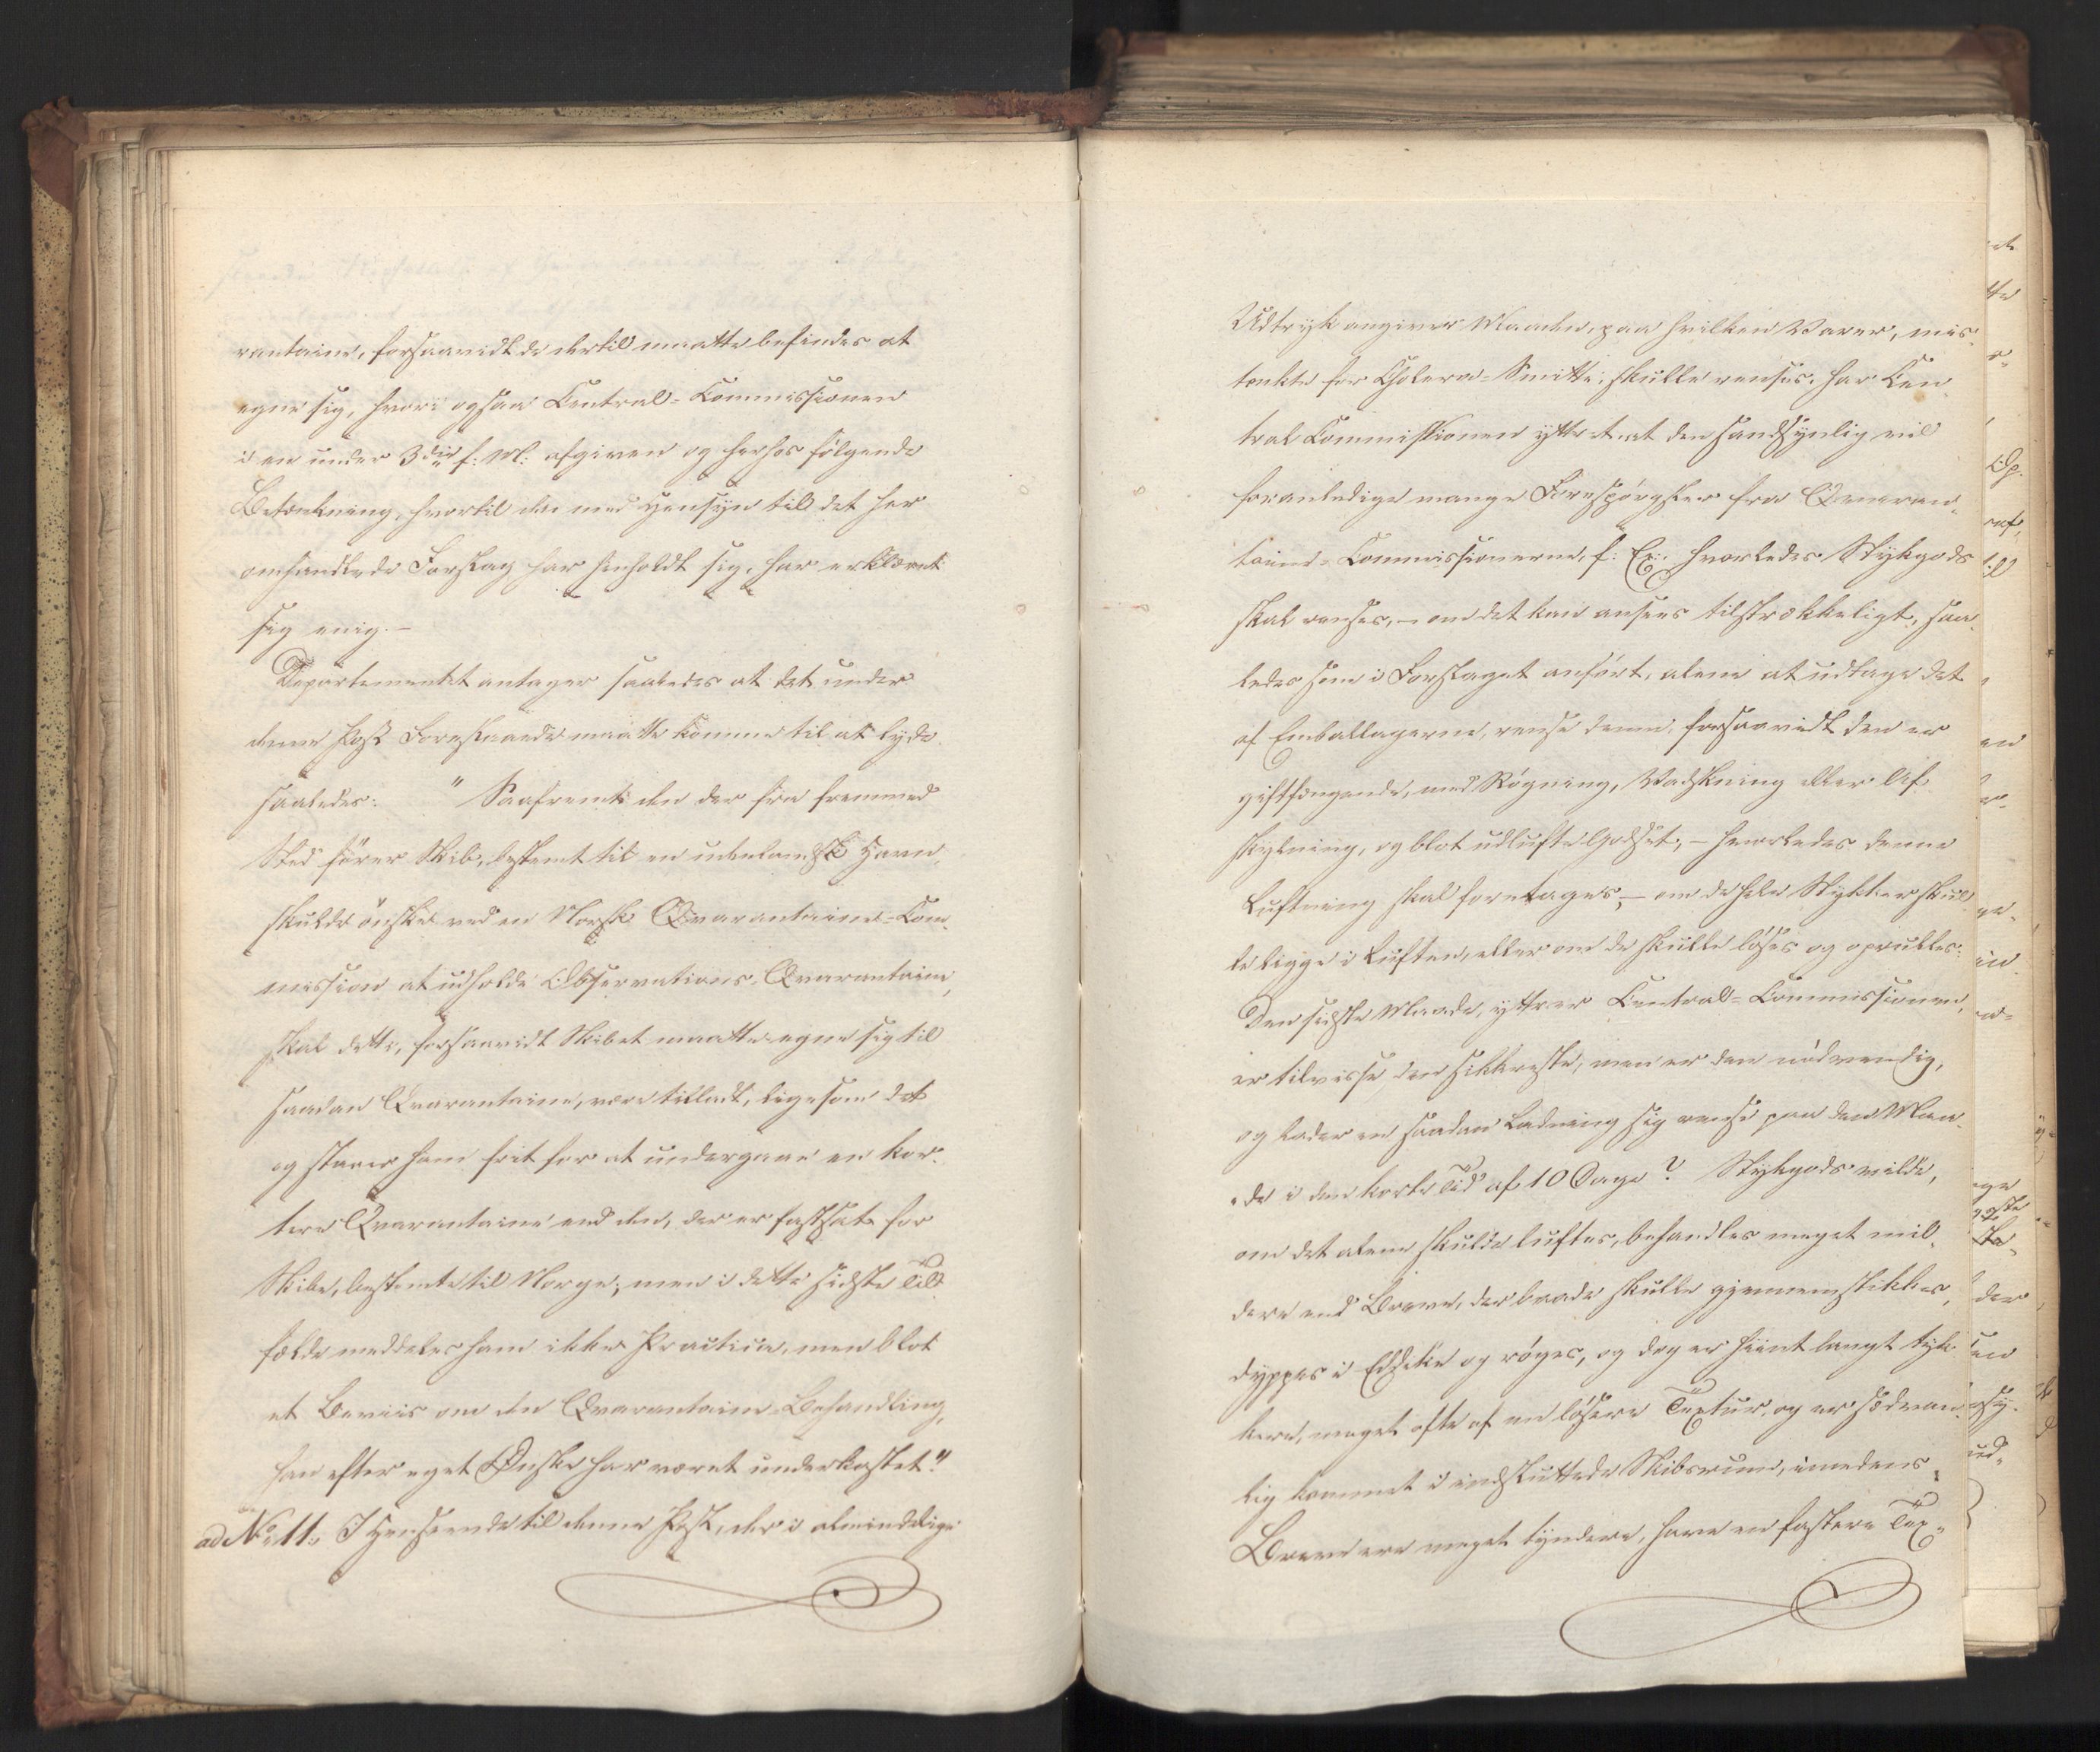 rantaine, forsaavidt de dertil maatte befindes at
egne sig, hvori ogsaa Central-Commissionen
i en under 3die f: M: afgiven og herhos følgende
Betænkning, hvortil den med Hensyn til det her
omhandlede Forslag har henholdt sig, har erklæret
sig enig.-
Departementet antager saaledes at det under
denne Post Foreslaaede maatte komme til at lyde
saaledes: "Saafremt den der fra fremmed
Sted fører Skib, bestemt til en udenlandsk Havn,
skulde ønske ved en Norsk Qvarantaine-Com-
mission at udholde Observations-Qvarantaine,
skal dette, forsaavidt Skibet maatte egne sig til
saadan Qvarantaine, være tilladt, ligesom det
og staaer ham frit for at undergaae en kor-
tere Qvarantaine end den, der er fastsat for
Skibe, bestemte til Norge; men i dette sidste Til-
fælde meddeles ham ikke Practica, men blot
et Beviis om den Qvarantaine-Behandling,
han efter eget Ønske har været underkastet."
ad No 11: I Henseende til denne Post, der i almindelige
Udtryk angiver Maaden, paa hvilken Varer, mis-
tænkte for Cholera-Smitte, skulle renses, har Cen-
tral Commissionen yttret at den sandsynlig vil
foranledige mange Forespørgsler fra Qvaran-
taine-Commissionerne, f: Ex: hvorledes Stykgods
skal renses, – om det kan ansees tilstrækkeligt, saa-
ledes som i Forslaget anført, alene at udtage det
af Emballagerne, rense denne, forsaavidt den er
giftfængende, med Røgning, Vadskning eller Af-
skylning, og blot udlufte Godset, – hvorledes denne
Luftning skal foretages, – om de hele Stykker skul-
le ligge i Luften, eller om de skulle løses og oprulles.
Den sidste Maade, yttrer Central-Commissionen,
er tilvisse den sikkreste, men er den nødvendig,
og lader en saadan Ladning sig rense paa den Maa-
de i den korte Tid af 10 Dage? Stykgods vilde,
om det alene skulde luftes, behandles meget mil-
dere end Breve, der baade skulle gjennemstikkes,
dyppes i Eddike og røges, og dog er hiint langt tyk-
kere, meget ofte af en løsere Textur, og er sædvan-
lig kommet i indsluttede Skibsrum, imedens
Breve ere meget tyndere, have en fastere Tex-